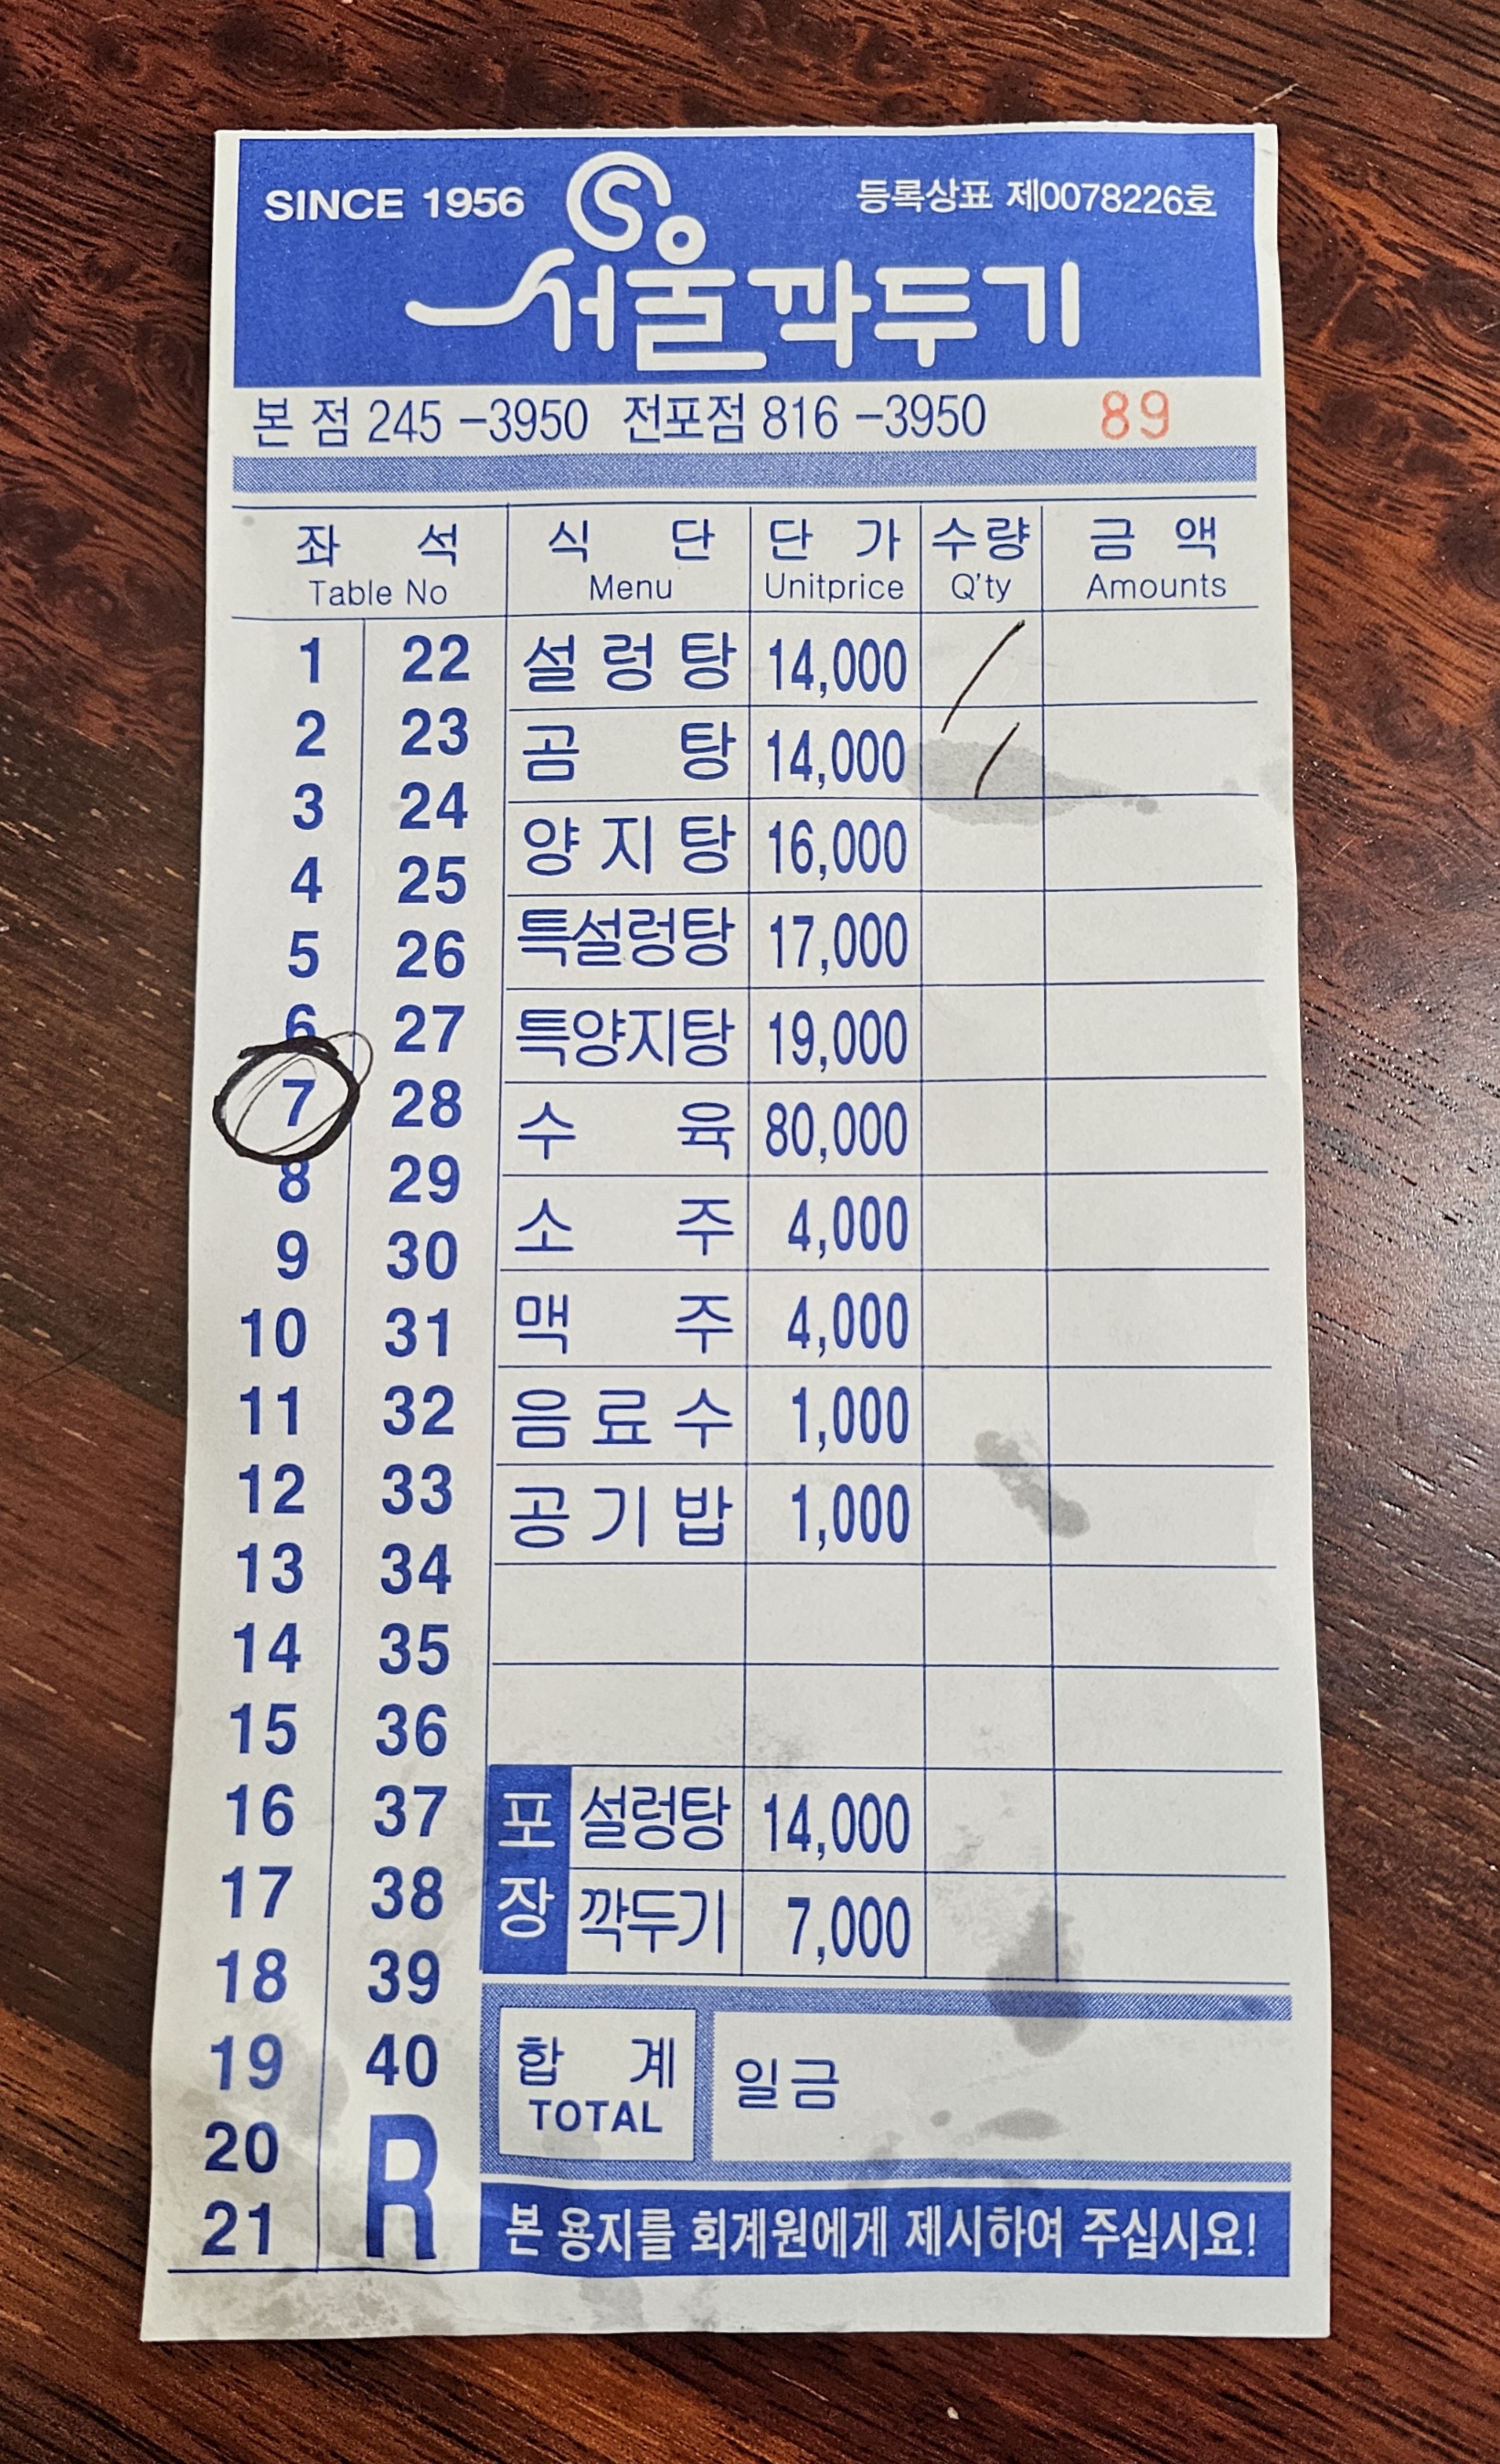 SINCE 1956 등록상표 제0078226호
서울깍두기
본 점 245 -3950 전포점 816 -3950 89
좌 석 식 단 단 가 수량 금 액
Table No Menu Unitprice Q'ty Amounts
1 22 설 렁 탕 14,000 /
2 23 곰 탕 14,000 /
3 24 양 지 탕 16,000
4 25
5 26 특설렁탕 17,000
6 27 특양지탕 19,000
7 28 수 육 80,000
8 29 소 주 4,000
9 30
10 31 맥 주 4,000
11 32 음 료 수 1,000
12 33 공 기 밥 1,000
13 34
14 35
15 36
16 37 포장 설렁탕 14,000
17 38 깍두기 7,000
18 39
19 40 합 계 일금
TOTAL
20 R
21 본 용지를 회계원에게 제시하여 주십시요!